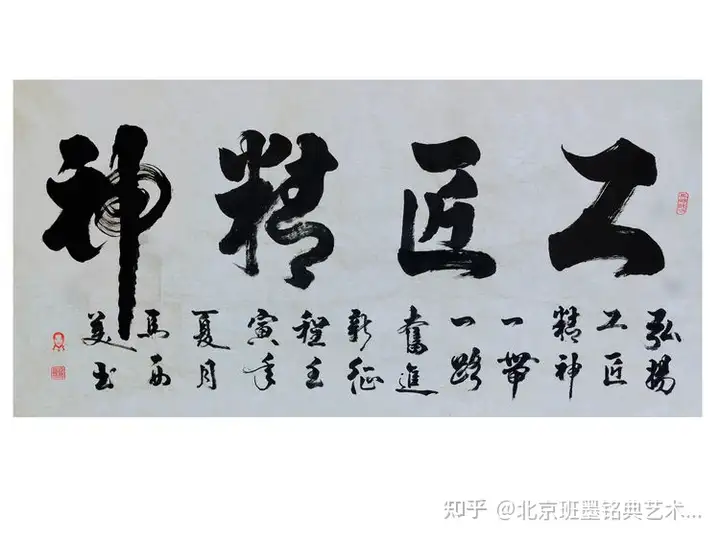 工匠精神
弘揚
工匠
精神
一帶
一路
奮進
新征
程壬
寅年
夏月
馬
美書
知乎 @北京班墨铭典艺术...